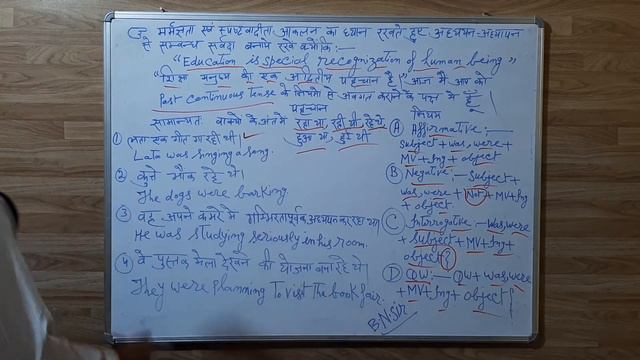 मर्मज्ञता एवं स्पष्टवादिता आकलन का ध्यान रखते हुए अध्ययन-अध्यापन
से सम्बन्ध सर्वदा बनाये रखे क्योंकि:-
"Education is special recognization of human being"
"शिक्षा मनुष्य की एक अद्वितीय पहचान है" आज मैं आप को
Past Continuous Tense के नियमों से अवगत कराने के पक्ष में हूँ
पहचान
सामान्यतः वाक्यों के अंत में रहा था, रही थी, रहे थे
हुआ था, हुई थी
① लता एक गीत गा रही थी।
Lata was singing a song.
② कुत्ते भौंक रहे थे।
The dogs were barking.
③ वह अपने कमरे में गम्भिरतापूर्वक अध्ययन कर रहा था।
He was studying seriously in his room.
④ वे पुस्तक मेला देखने की योजना बना रहे थे।
They were Planning To visit The book fair.
नियम
Ⓐ Affirmative:-
subject + was, were +
MV + Ing + object
Ⓑ Negative:- Subject +
was, were + Not + MV + Ing
+ object.
Ⓒ Interrogative:- was, were
+ Subject + MV + Ing +
object?
Ⓓ QW:- QW + was, were
+ MV + Ing + object?
B.N Sir